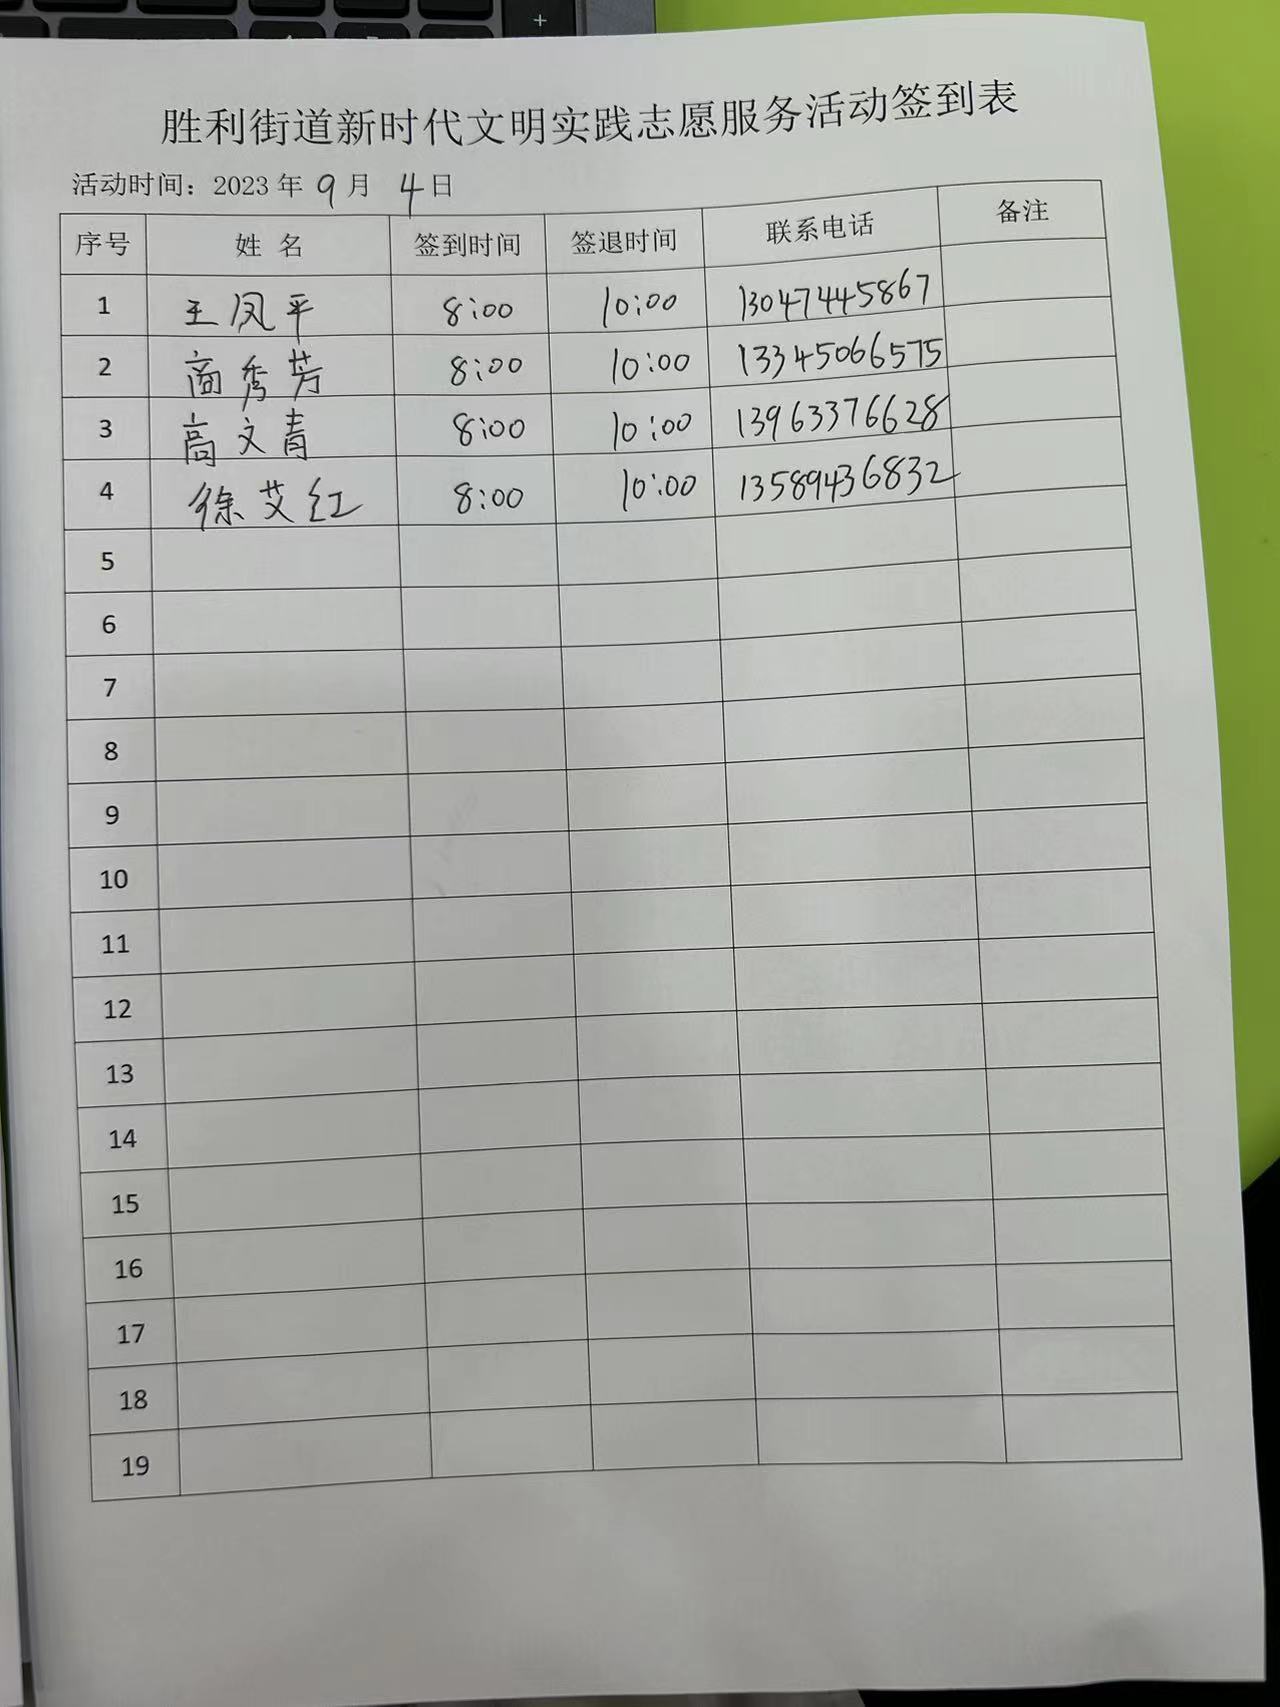 胜利街道新时代文明实践志愿服务活动签到表
活动时间：2023 年 9 月 4 日
序号 姓 名 签到时间 签退时间 联系电话 备注
1 王凤平 8:00 10:00 13047445867
2 商秀芳 8:00 10:00 13345066575
3 高文青 8:00 10:00 13963376628
4 徐艾红 8:00 10:00 13589436832
5
6
7
8
9
10
11
12
13
14
15
16
17
18
19